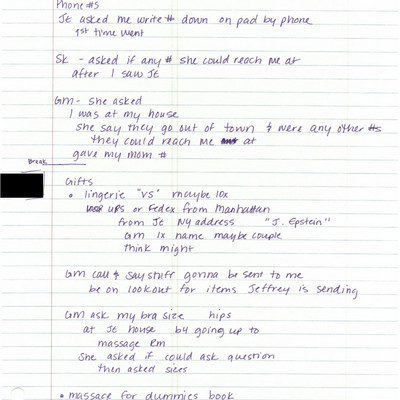 Phone #s
JE asked me write # down on pad by phone
1st time went
SK - asked if any # she could reach me at
after I saw JE
GM - she asked
I was at my house
she say they go out of town & were any other #s
they could reach me at
gave my mom #
Break
Gifts
• lingerie "VS" maybe 10x
UPS or Fedex from Manhattan
from JE NY address "J. Epstein"
GM 1x name maybe couple
think might
GM call & say stuff gonna be sent to me
be on lookout for items Jeffrey is sending
GM ask my bra size hips
at JE house b4 going up to
massage Rm
She asked if could ask question
then asked sizes
• massage for dummies book